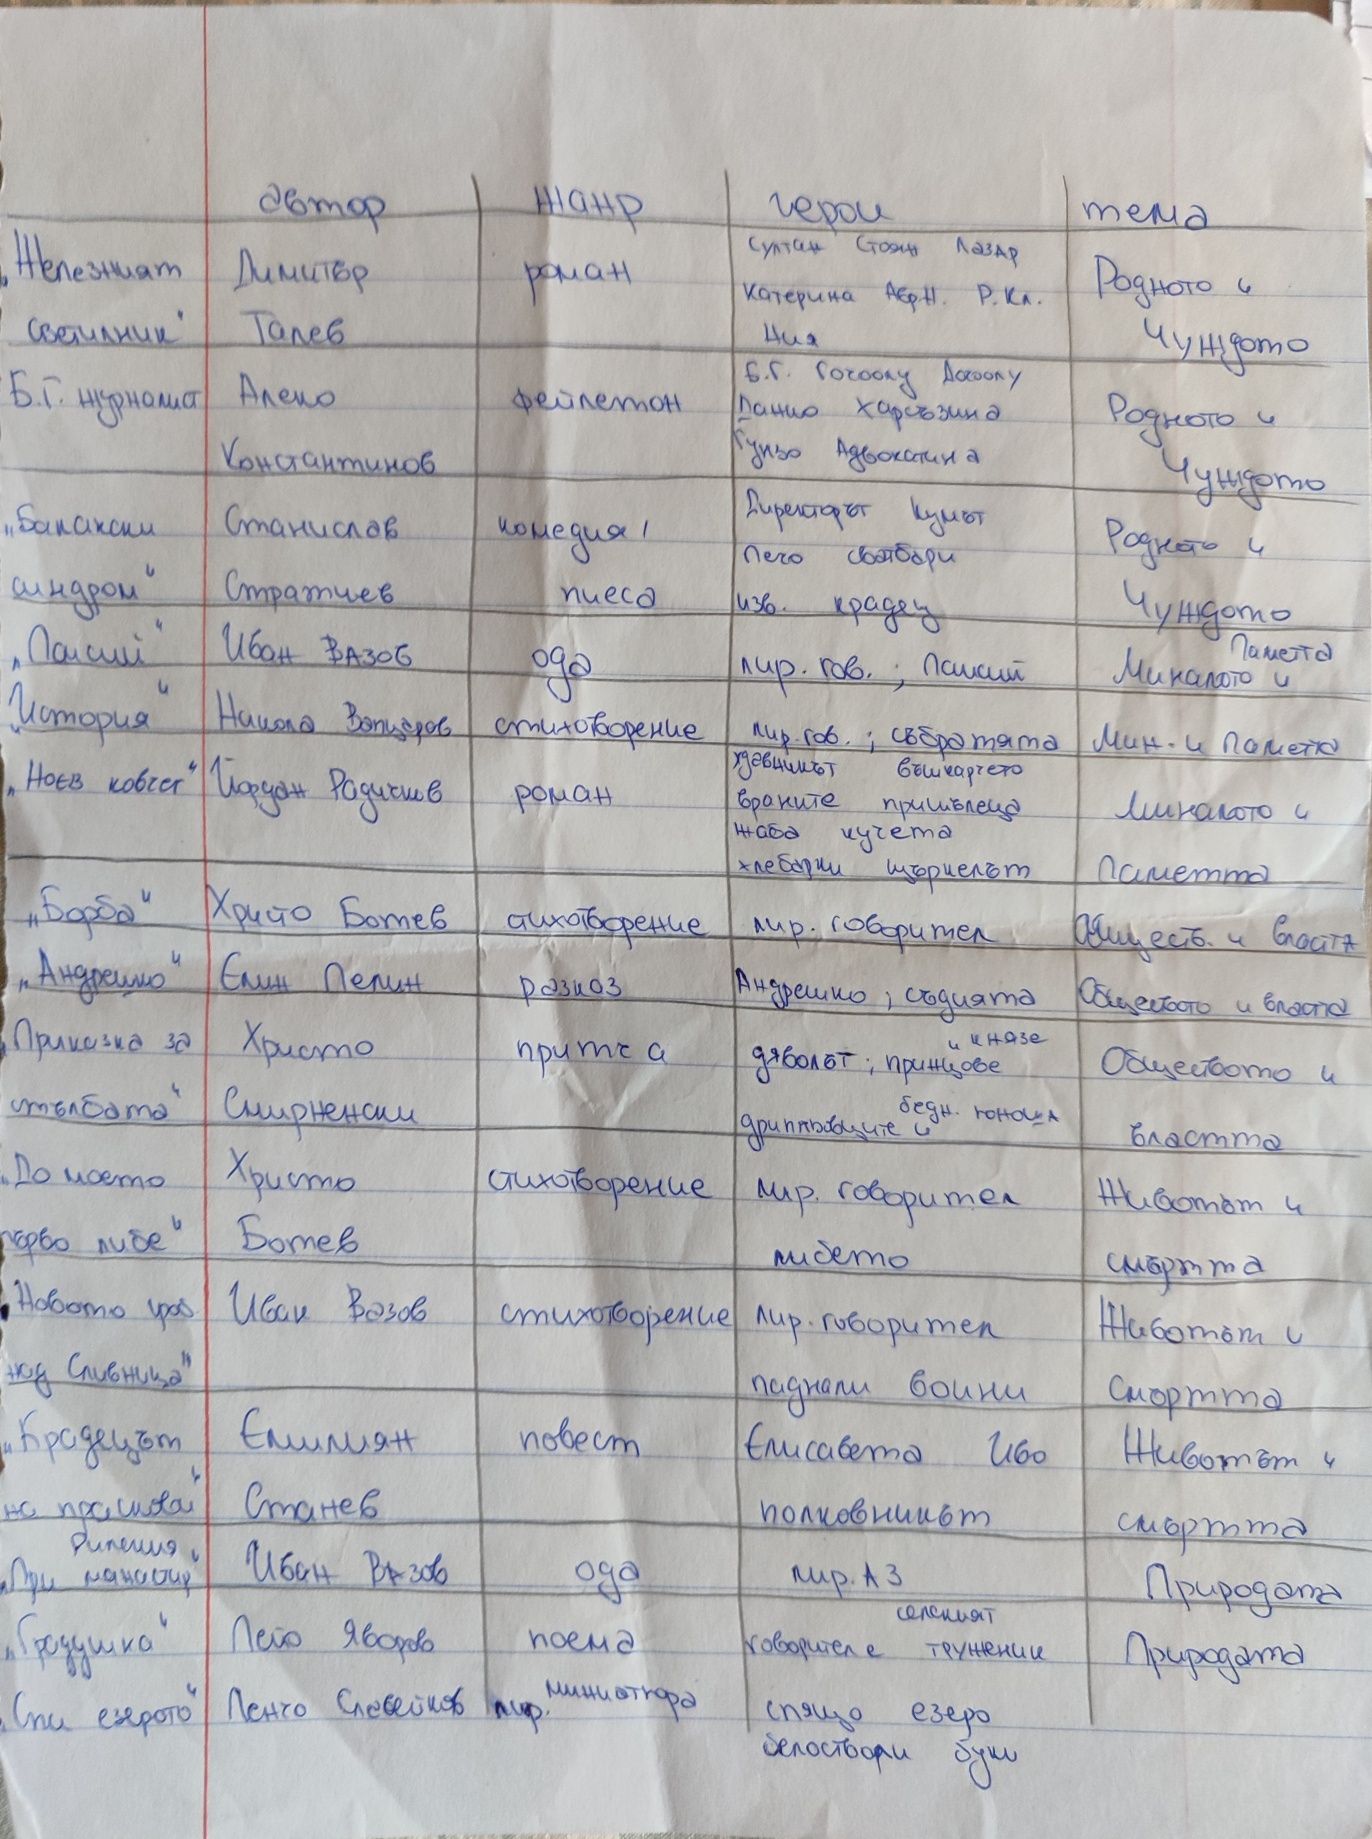 автор жанр герои тема
„Железният Димитър роман Султан Стоян Лазар Родното и
светилник“ Талев Катерина Авр.Н. Р.Кл. Чуждото
Ния
Б.Г. журналист Алеко фейлетон Б.Г. Гочоолу Дочоолу Родното и
Данко Харсъзина
Константинов Гуньо Адвокатина Чуждото
„Балкански Станислав комедия/ Директорът Кумът Родното и
Печо сватбари
синдром“ Стратиев пиеса изв. крадец Чуждото
„Паисий“ Иван Вазов ода лир. гов. ; Паисий Миналото и Паметта
„История“ Никола Вапцаров стихотворение лир. гов. ; събратята Мин. и Паметта
„Ноев ковчег“ Йордан Радичков роман вшкарчето Миналото и
враните пришълеца
жаба кучета
хлебарки щъркелът Паметта
„Борба“ Христо Ботев стихотворение лир. говорител Обществ. и властта
„Андрешко“ Елин Пелин разказ Андрешко ; съдията Обществото и властта
„Приказка за Христо притча дяволът ; принцове и князе Обществото и
стълбата“ Смирненски дрипльовците и бедн. юноша властта
„До моето Христо стихотворение лир. говорител Животът и
първо либе“ Ботев либето смъртта
„Новото гроб. Иван Вазов стихотворение лир. говорител Животът и
над Сливница“ паднали воини Смъртта
„Крадецът Емилиян повест Елисавета Иво Животът и
на праскови“ Станев полковникът смъртта
„При Рилския манастир“ Иван Вазов ода лир. АЗ Природата
„Градушка“ Пейо Яворов поема говорител е селският труженик Природата
„Спи езерото“ Пенчо Славейков лир. миниатюра спящо езеро
белостволи буки